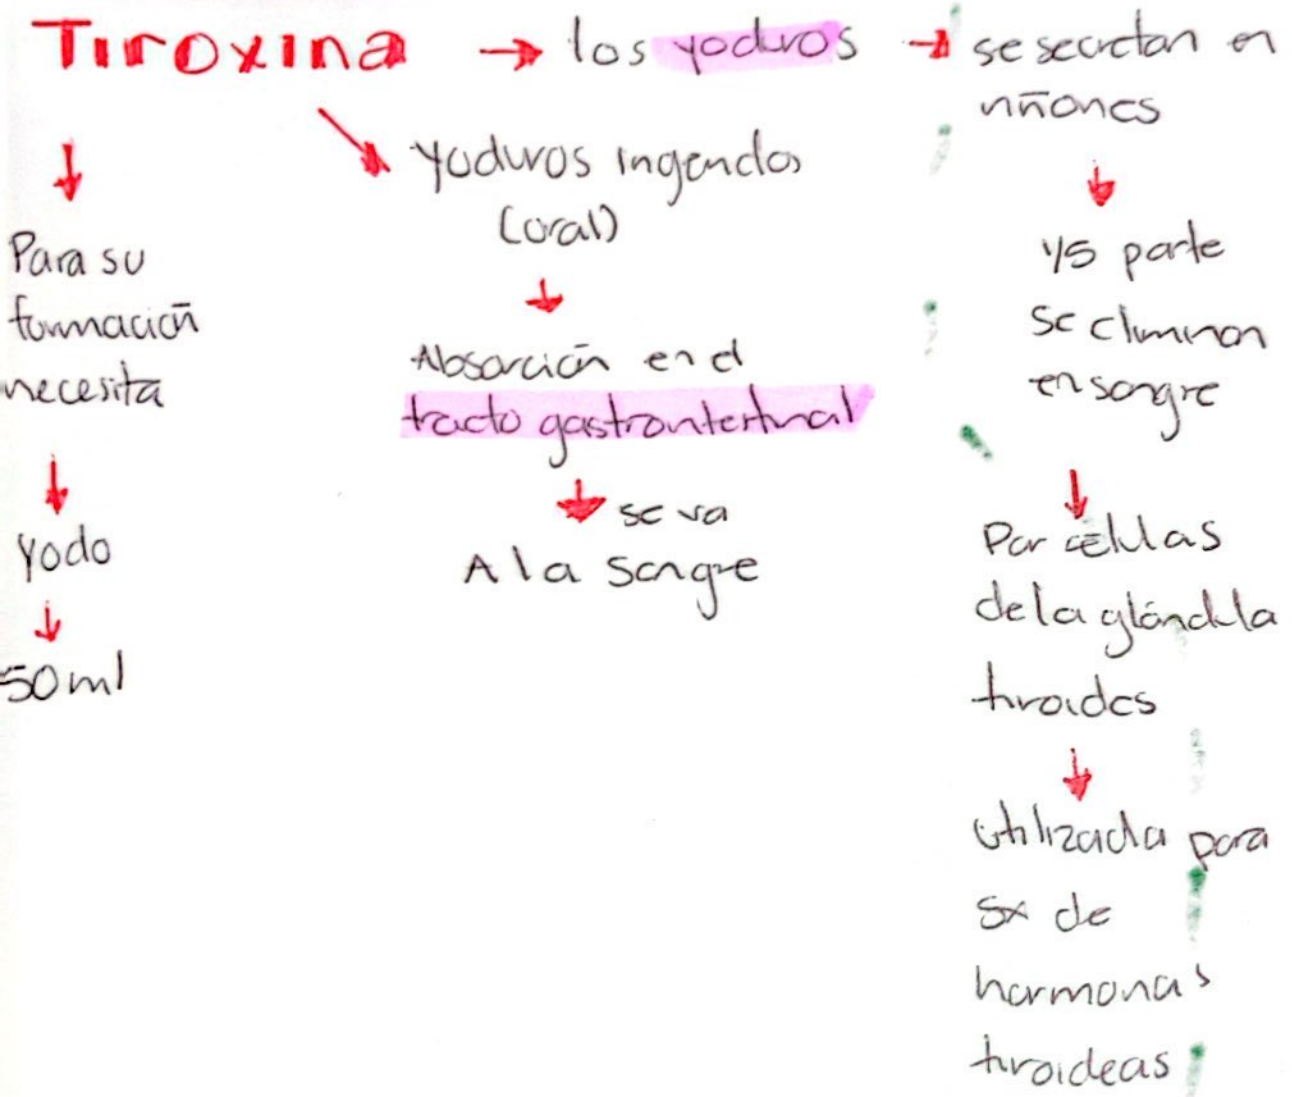 Tiroxina → los yoduros → se secretan en
riñones
Para su
formación
necesita
Yodo
50 ml
Yoduros ingeridos
(oral)
Absorción en el
tracto gastrointestinal
se va
A la sangre
1/5 parte
se eliminan
en sangre
Por células
de la glándula
tiroides
utilizada para
Sx de
hormonas
tiroideas